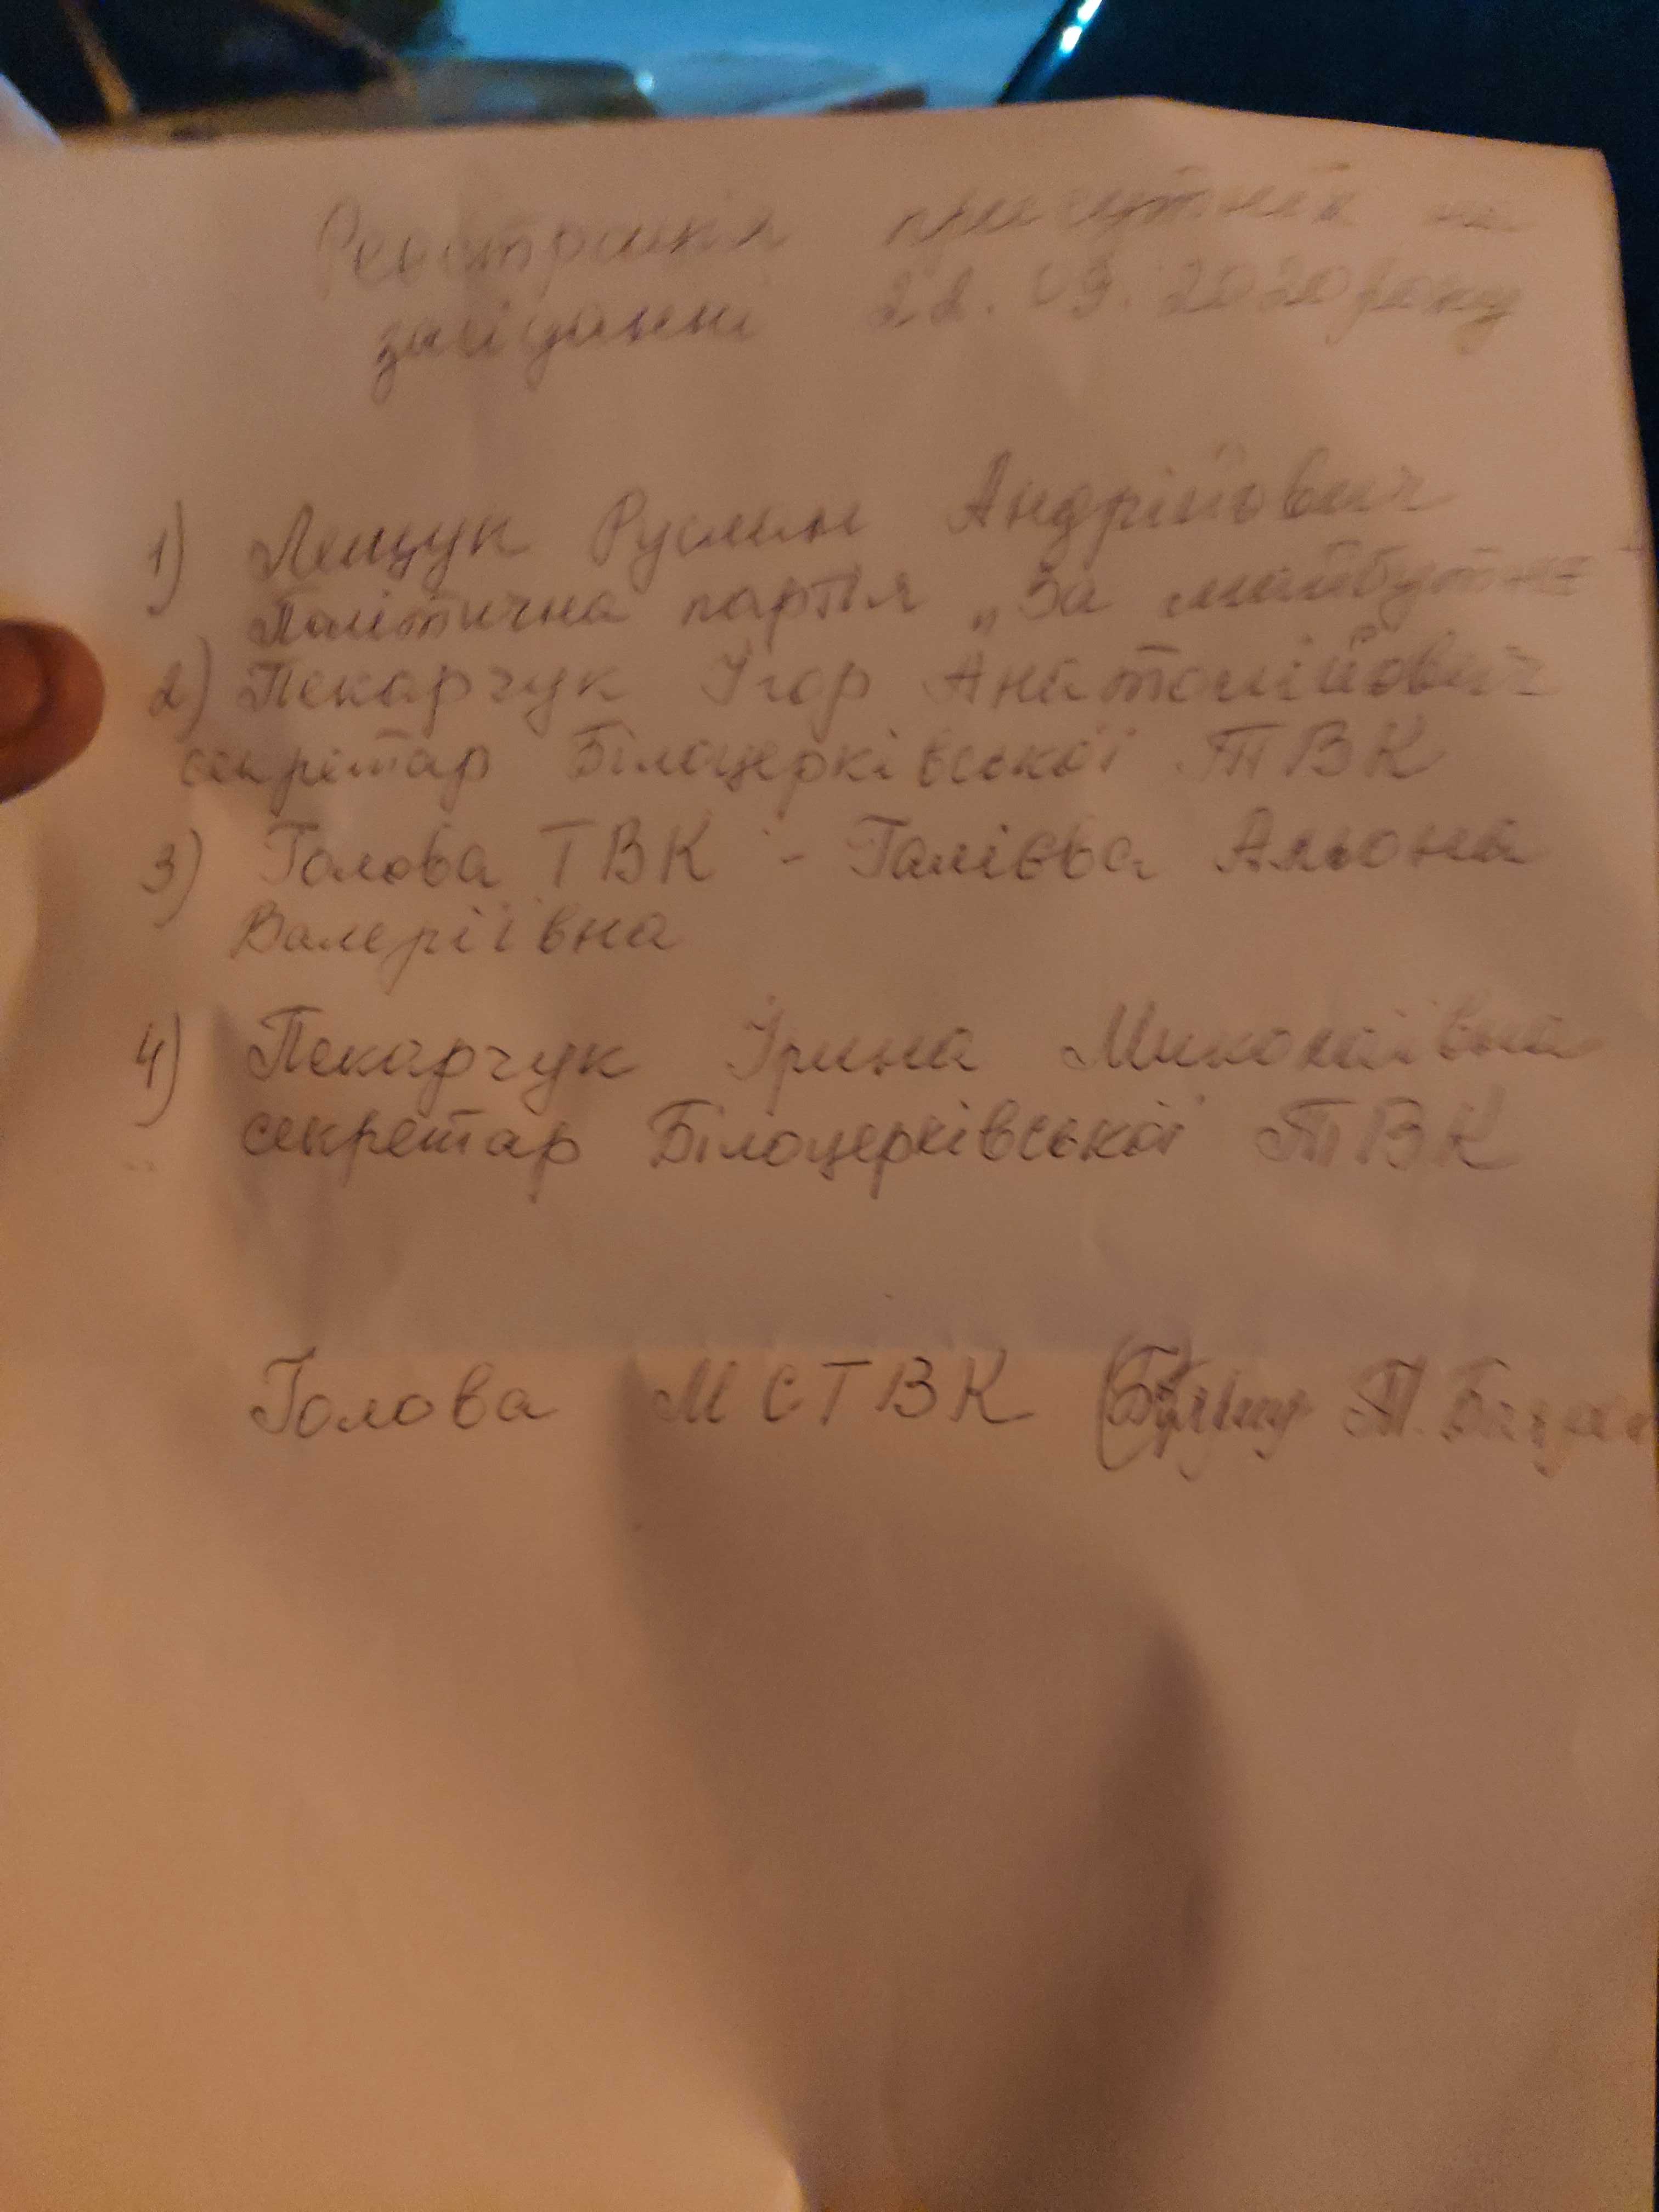 Реєстрація присутніх на
засіданні 22.09.2020 року
1) Лещук Руслан Андрійович
Політична партія „За майбутнє
2) Пекарчук Ігор Анатолійович
секретар Білоцерківської ТВК
3) Голова ТВК - Галієва Альона
Валеріївна
4) Пекарчук Ірина Миколаївна
секретар Білоцерківської ТВК
Голова МСТВК Т.